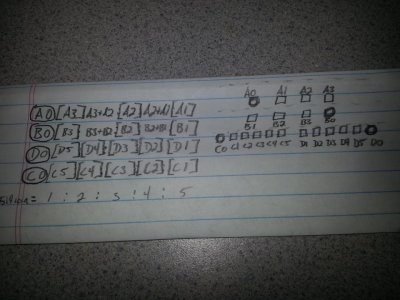 A0 A1 A2 A3
(A0)[A3] A3+A2 [A2] A2+A1 [A1]
(B0)[B3] B3+B2 [B2] B2+B1 [B1] B1 B2 B3 B0
(D0)[D5][D4][D3][D2][D1] C0 C1 C2 C3 C4 C5 D1 D2 D3 D4 D5 D0
(C0)[C5][C4][C3][C2][C1]
= 1 : 2 : 3 : 4 : 5